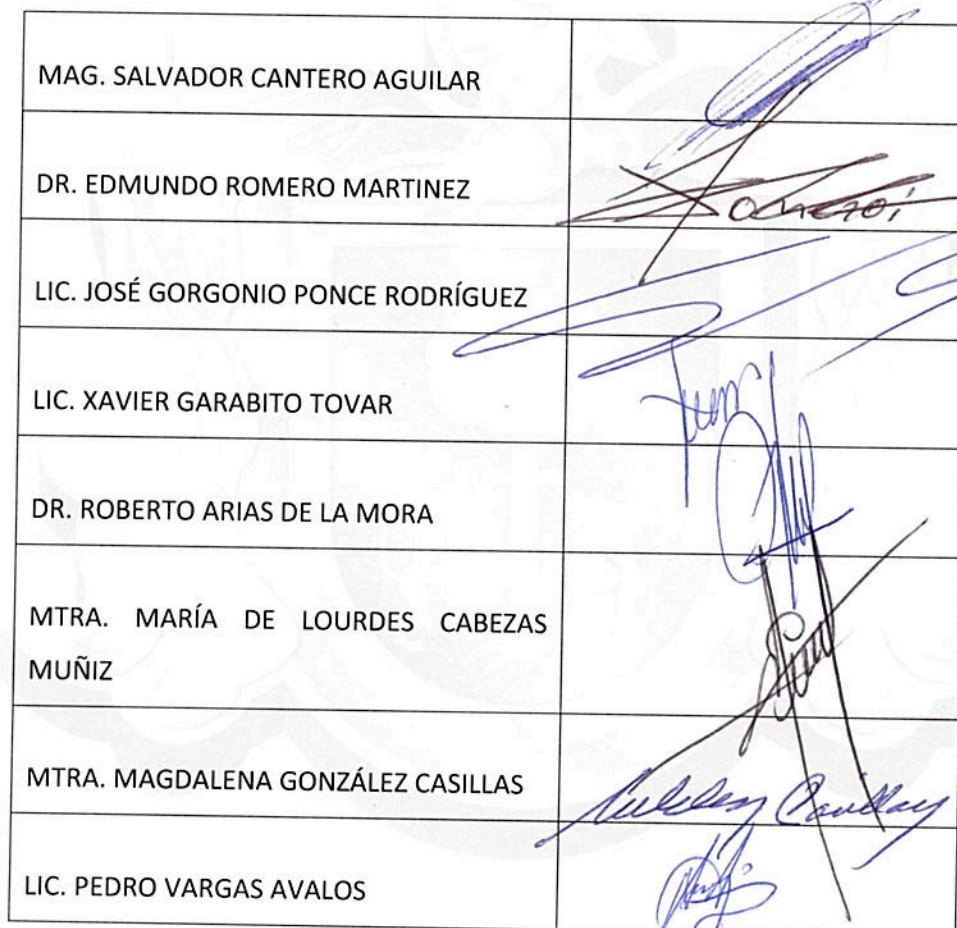 MAG. SALVADOR CANTERO AGUILAR
DR. EDMUNDO ROMERO MARTINEZ
LIC. JOSÉ GORGONIO PONCE RODRÍGUEZ
LIC. XAVIER GARABITO TOVAR
DR. ROBERTO ARIAS DE LA MORA
MTRA. MARÍA DE LOURDES CABEZAS
MUÑIZ
MTRA. MAGDALENA GONZÁLEZ CASILLAS
LIC. PEDRO VARGAS AVALOS